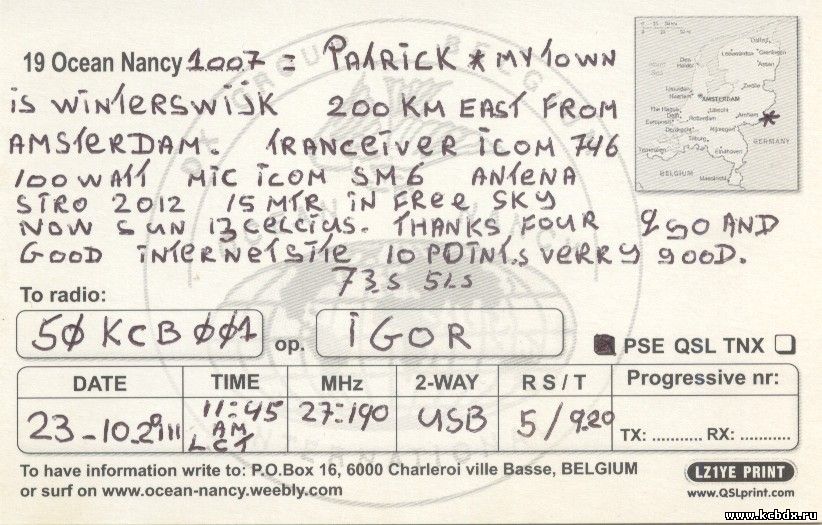 19 Ocean Nancy 1007 = PATRICK * MY TOWN
IS WINTERSWIJK 200 KM EAST FROM
AMSTERDAM. TRANCEIVER ICOM 746
100 WATT MIC ICOM SM6 ANTENA
SIRO 2012 15 MTR IN FREE SKY
NOW SUN 13 CELCIUS. THANKS FOUR QSO AND
GOOD INTERNETSITE 10 POINT.s VERRY GOOD.
73.s 51.s
AMSTERDAM
Utrecht
Rotterdam
Arnhem
Nijmegen
Eindhoven
Maastricht
GERMANY
BELGIUM
To radio:
50 KCB 001 op. IGOR
PSE QSL TNX
DATE TIME MHz 2-WAY RS/T Progressive nr:
23-10-2011 11:45 AM LCT 27:190 USB 5/9.20
TX: ........... RX: ...........
To have information write to: P.O.Box 16, 6000 Charleroi ville Basse, BELGIUM
or surf on www.ocean-nancy.weebly.com
LZ1YE PRINT
www.QSLprint.com
www.kcbdx.ru